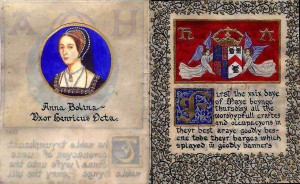 A H
Anna Bolina~
Uxor Henricus Octa.
H A
First the xxix daye
of Maye beynge
thursday all the
worshypfull crafts
and occupacyons in
theyr best araye goodly bes
ene toke theyr barges which
splayed in goodly banners